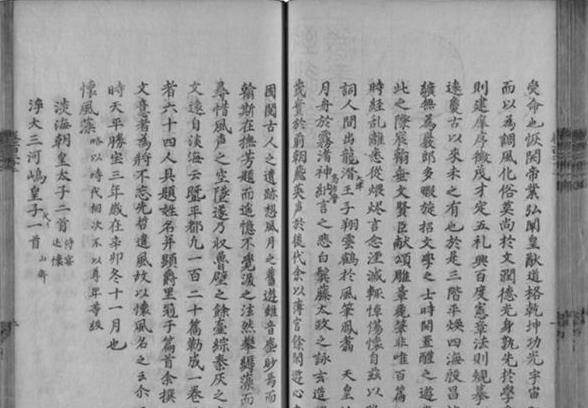 受命也恢開帝業弘闡皇猷道格乾坤功光宇宙
而以為調風化俗莫尚於文潤德光身孰先於學
則建庠序徴茂才定五礼興百度憲章法則規摹
遠夐古以来未之有也於是三階平煥四海殷昌
纊無為巖郎多暇旋招文學之士時開置醴之遊
此之際宸翰垂文賢臣献頌雕章麗筆非唯百篇
時経乱離悉從煨燼言念湮滅軫悼傷懐自茲以
詞人間出龍潜王子翔雲鶴於風筆鳳翥 天皇
月舟於霧渚神納言之悲白鬢藤太政之詠玄造
茂實於前朝飛英声於後代余以薄官餘間遊心
因閲古人之遺跡想風月之舊遊雖音塵眇焉而
翰斯在撫芳題而遥憶不覚涙之泫然攀縟藻而
尋惜風声之空墜遂乃収魯壁之餘蠧綜秦灰之
文遠自淡海云曁平都凡一百二十篇勒成一巻
者六十四人具題姓名并顕爵里冠于篇首余撰
文意者為将不忘先哲遺風故以懐風名之云尓
時天平勝宝三年歳在辛卯冬十一月也
懐風藻 略以時代相次不以尊卑等級
淡海朝皇太子二首 侍宴 述懐
浄大三河嶋皇子一首 山斎